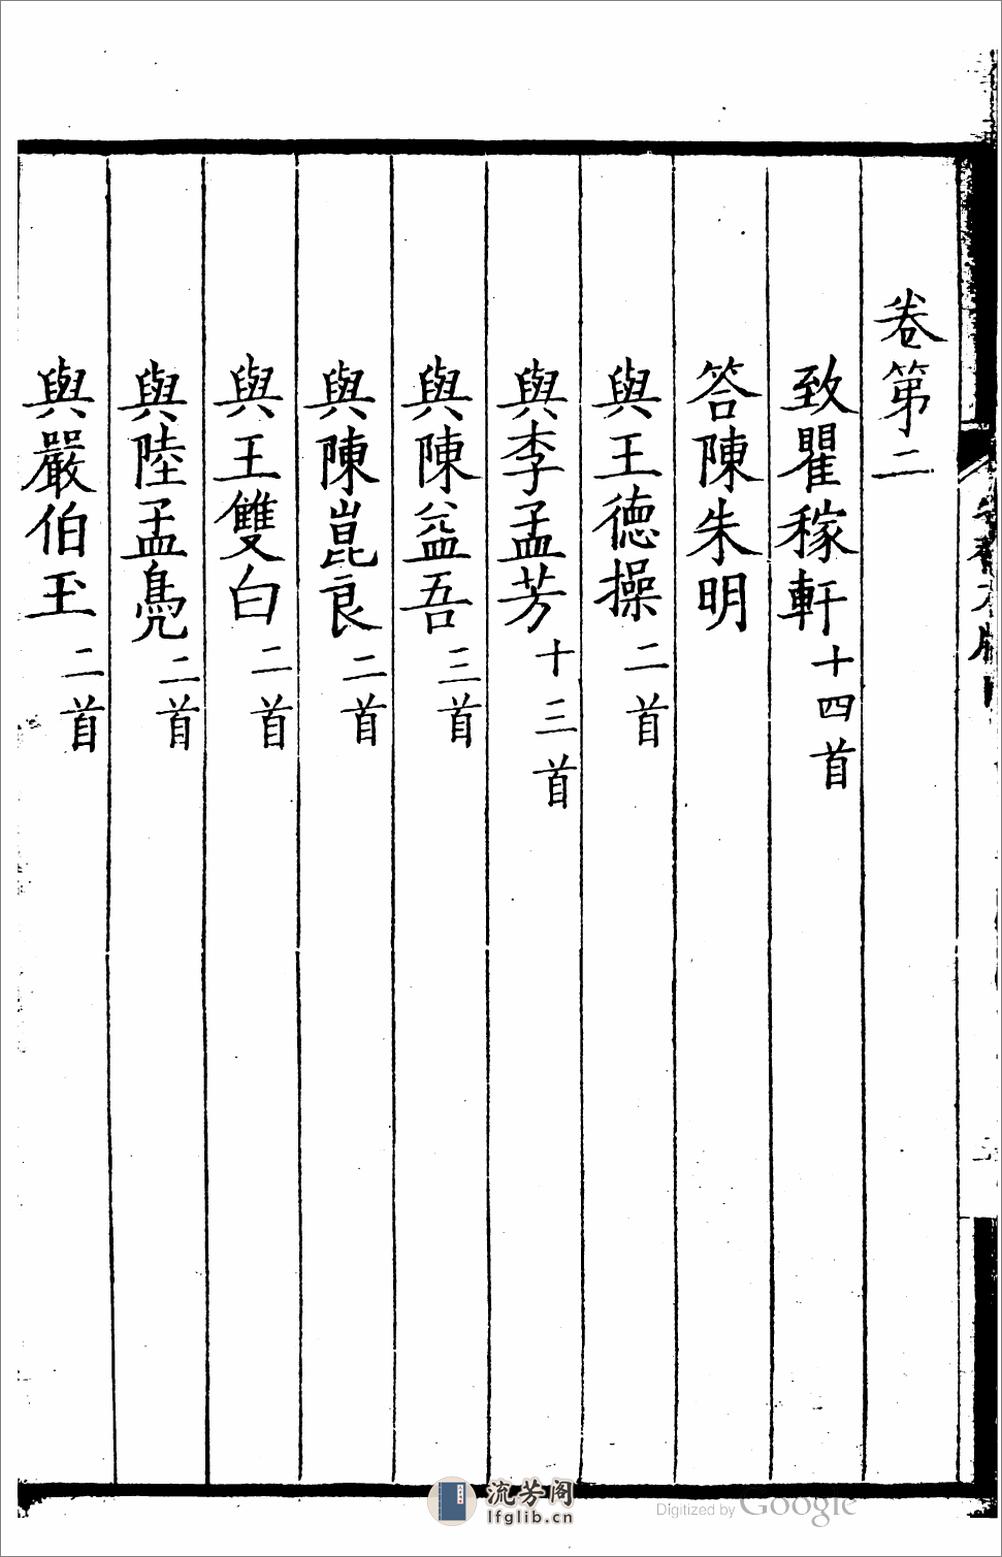 卷第二
致瞿稼軒十四首
答陳朱明
與王德操二首
與李孟芳十三首
與陳益吾三首
與陳崑良二首
與王雙白二首
與陸孟鳧二首
與嚴伯玉二首
流芳阁
lfglib.cn
Digitized by Google